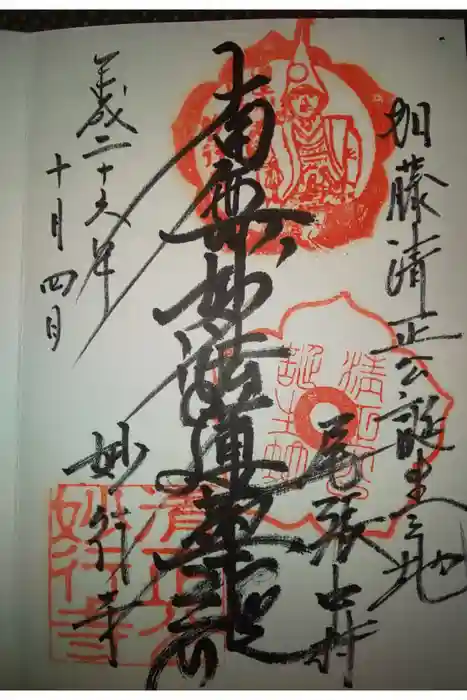 加藤清正公誕生之地
尾張中村
南無妙法蓮華經
平成二十六年
十月四日
妙行寺
清正公
誕生地
清正公
妙行寺